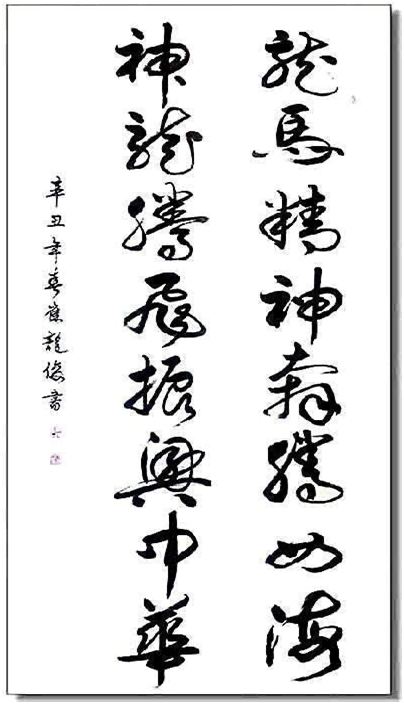 龍馬精神奔騰如海
神龍騰飛振興中華
辛丑年春龍書